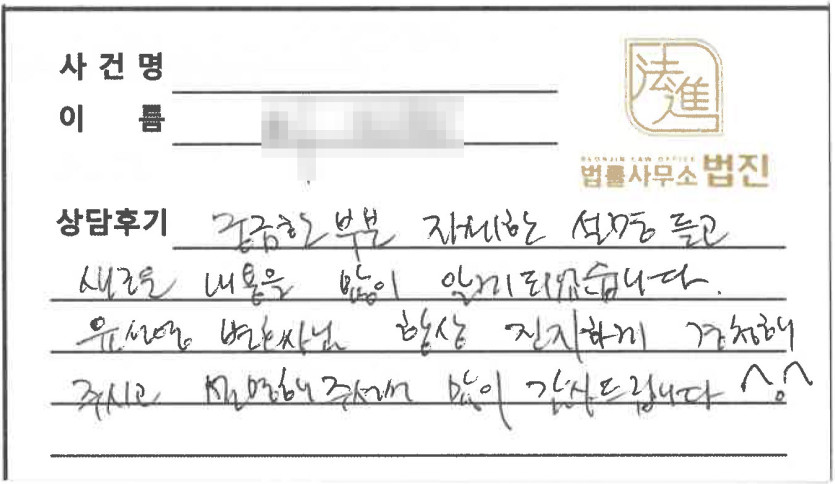 사건명
이 름
法進
BEONJIN LAW OFFICE
법률사무소 법진
상담후기 궁금한 부분 자세한 설명 듣고
새로운 내용을 많이 알게되었습니다.
변호사님 항상 진지하게 경청해
주시고 설명해주셔서 많이 감사드립니다 ^o^